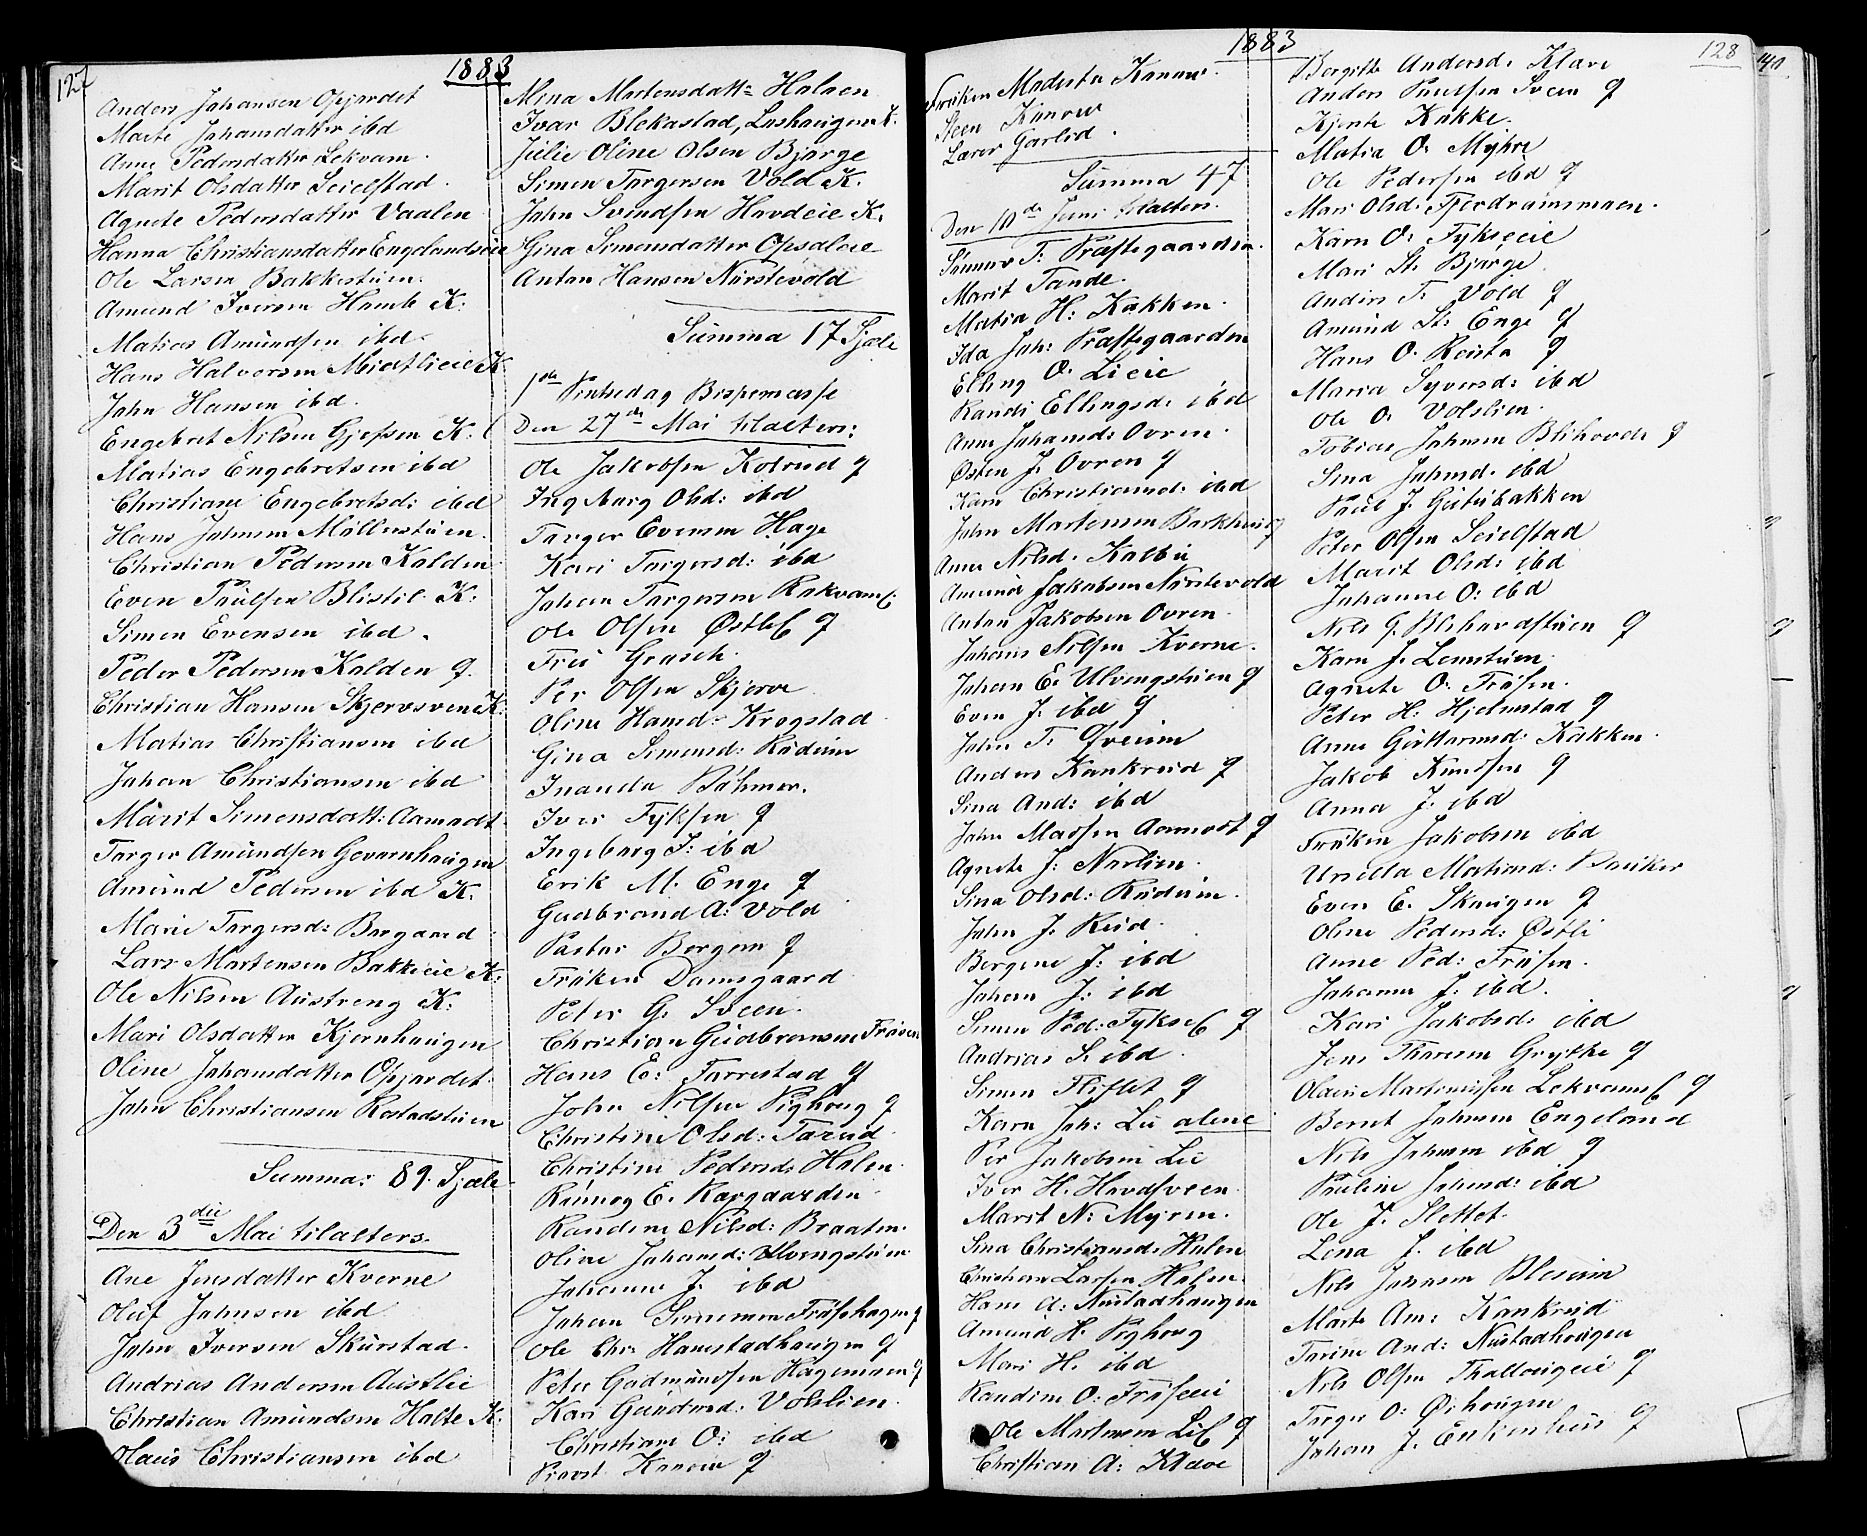 127
1883
Anders Johansen Opjordet
Marte Johansdatter ibd
Anne Pedersdatter Lekvam.
Marit Olsdatter Seielstad.
Agnete Pedersdatter Vaalen
Hanna Christiansdatter Engelandseie
Ole Larsen Bakkestuen.
Amund Iversen Homb K:
Matias Amundsen ibd.
Hans Halvorsen Midtlieeie K
John Hansen ibd.
Engebret Nilsen K:
Matias Engebretsen ibd
Christiane Engebretsd: ibd
Hans Johnsen Möllerstuen.
Christian Pedersen Kalden
Even Paulsen Blistil. K:
Simen Evensen ibd.
Peder Pedersen Kalden g.
Christian Hansen Skjervsven K:
Matias Christiansen ibd
Johan Christiansen ibd
Marit Simensdatt: Aamodt
Torger Amundsen
Amund Pedersen ibd K.
Marie Torgersd: Borgaard
Lars Martensen Bakkeeie K:
Ole Nilsen Austreng K:
Mari Olsdatter Kjernhaugen
Oline Johansdatter Opjordet.
John Christiansen Rostadstuen
Summa: 89. Sjæle
Den 3die Mai tilalters.
Ane Jensdatter Kverne
Oluf Johnsen ibd
John Iversen Skurstad.
Andrias Andersen Austlie
Christian Amundsen Holte K:
Olaus Christiansen ibd
Mina Martensdatt= Halsen
Ivar Blekastad, K.
Julie Oline Olsen Bjørge
Simen Torgersen Vold K.
John Svendsen Havdeie K.
Gina Simensdatter Opsaleie
Anton Hansen Nörstevold
Summa 17 Sjæle
1ste Pintsedag Bispemesse
Den 27de Mai tilalters:
Ole Jakobsen Kolrud g
Ingeborg Olsd: ibd
Torger Evensen Hage
Kari Torgersd: ibd
Johan Torgersen
Ole Olsen g
Fru Grosch.
Per Olsen Skjerve
Oline Hansd: Krogstad
Gina Simensd: Rudiin
Inanda Böhmer.
Iver Fyksen g
Ingeborg I: ibd
Erik M. Enge g
Gudbrand A: Vold
Pastor Borgen g
Fröken Damsgaard
Peter G. Sveen.
Christian Gudbransen Fröisen
Hans E: Torrestad g
John Nilsen Pighoug g
Christine Olsd: Tarud
Christine Pedersd. Holen.
Rönnog E.
Randine Nilsd: Braaten.
Oline Johansd: Ulvengstuen
Johanne J. ibd
Johan Simensen g
Ole Chr: g
Peter Gudmundsen Hagemoen g
Kari Gundersd. Volslien.
Christiane O: ibd
Provst Konow g
1883
128
Fröken Modesta Konow.
Steen Konow
Lærer Garlid.
Summa 47
Den 10de Juni tilalters.
Sünnøv T: Præstegaarden.
Marit Tande.
Matia H: Kakken.
Ida Joh: Præstegaarden
Elling O. Lieie
Randi Ellingsd. ibd
Anne Johansd: Ovren.
Østen J. Ovren g
Karn Christiansd: ibd
John Martensen Barkhaug
Anne Nilsd. Kalbu
Amund Jakobsen Nörstevold
Anton Jakobsen Ovren.
Johans Nilsen Kverne.
Johan E. Ulvengstuen g
Even J. ibd g
John T. Överiin
Anders Kankrud g
Sina And: ibd
John Madsen Aamodt g
Agnete J: Norlien.
Sina Olsd: Rudiin.
John J. Rud.
Bergine J: ibd
Johan J: ibd
Simen Ped: g
Andrias S. ibd.
Simen Flittet g
Karn Joh: Lü alene
Per Jakobsen Lie
Iver H. Havdsveen.
Marit N: Myren.
Sina Christiansd. Holen
Christian Larsen Holen.
Hans A: Nustadhaugen
Amund H. Pighoug
Mari H. ibd
Randine O: Fröiseeie
Ole Martinsen g
Christian A: Klave
Bergitte Andersd. Klave
Anders Paulsen Sveen g
Kjersti Kakke.
Matia O. Myhre
Ole Pedersen ibd g
Mari Olsd. Fjerdrumsmoen.
Karn O: Fykseeie
Mari St. Bjørge
Anders T: Vold g
Amund St: Enge g
Hans O. Rousta g
Maria Syversd: ibd
Ole O. Volslien.
Tobias Johnsen Blihovde g
Sina Johnsd. ibd
Paul J. Gutubakken
Peter Olsen Seielstad
Marit Olsd: ibd
Johanne O: ibd
Nils G. g
Karn J. Lennstuen.
Agnete O: Fröisen.
Peter H: Hjelmstad g
Anne Guttormsd. Kakken.
Jakob Knudsen g
Anna J. ibd
Fröken Jakobsen ibd
Ursilla Matiasd:
Even E. Skaugen g
Oline Pedersd: Østli
Anne Ped: Fröisen.
Johanne J: ibd.
Kari Jakobsd. ibd
Jens Thoresen Grytte g
Olaus Martiniussen g
Bernt Johnsen Engeland
Nils Johnsen ibd g
Pauline Johnsd: ibd
Ole J. Slettet.
Lena J. ibd
Nils Johnsen Bleiviin
Marte Am: Kankrud
Torine And: Nustadhaugen
Nils Olsen g
Torger O: Ørhaugen
Johan J. Enkenhus g